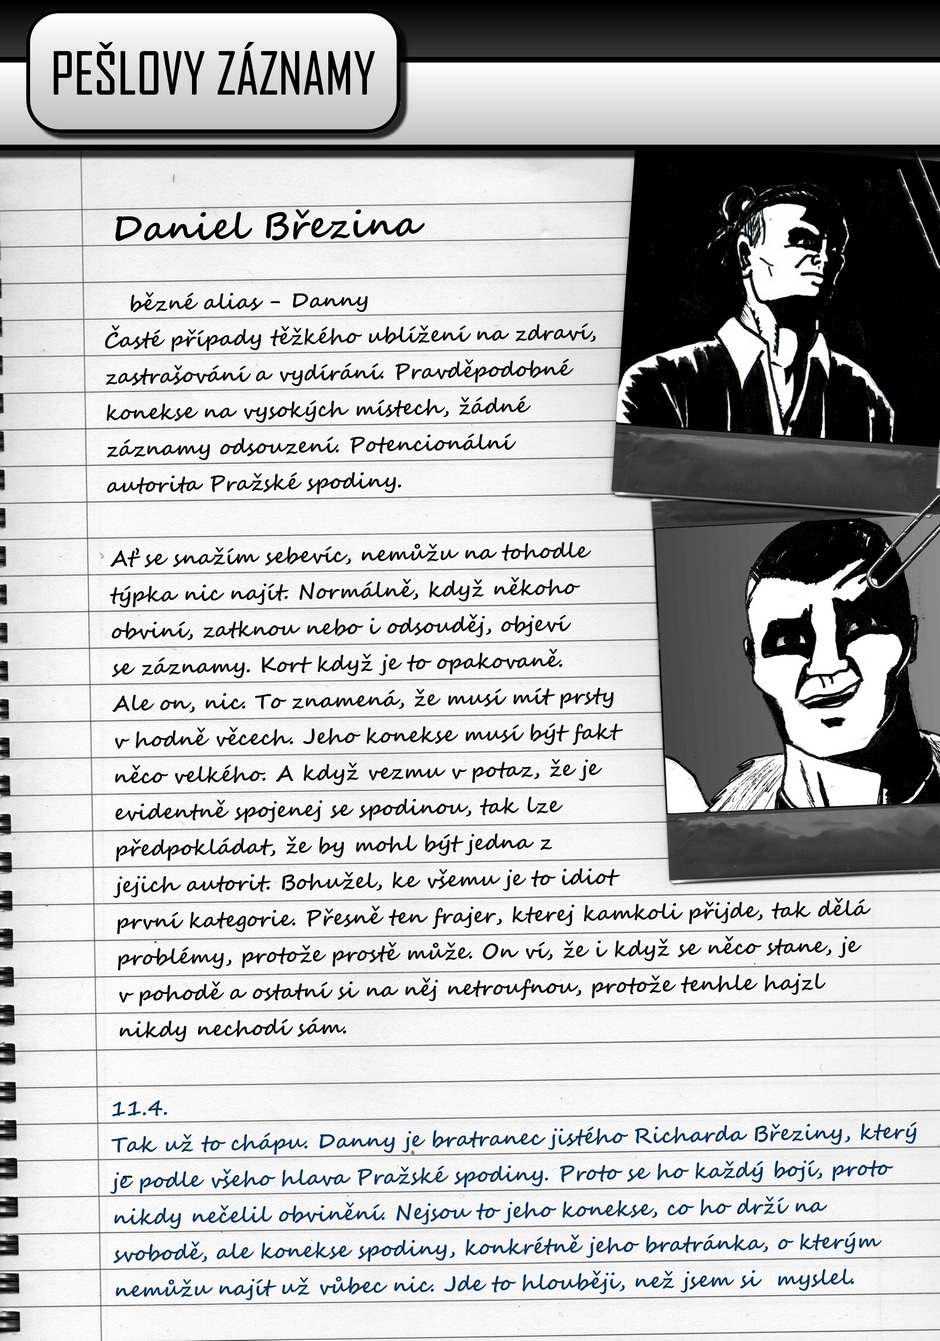 PEŠLOVY ZÁZNAMY
Daniel Březina
bězné alias - Danny
Časté případy těžkého ublížení na zdraví,
zastrašování a vydírání. Pravděpodobné
konekse na vysokých místech, žádné
záznamy odsouzení. Potencionální
autorita Pražské spodiny.
Ať se snažím sebevíc, nemůžu na tohodle
týpka nic najít. Normálně, když někoho
obviní, zatknou nebo i odsouděj, objeví
se záznamy. Kort když je to opakovaně.
Ale on, nic. To znamená, že musí mít prsty
v hodně věcech. Jeho konekse musí být fakt
něco velkého. A když vezmu v potaz, že je
evidentně spojenej se spodinou, tak lze
předpokládat, že by mohl být jedna z
jejich autorit. Bohužel, ke všemu je to idiot
první kategorie. Přesně ten frajer, kterej kamkoli přijde, tak dělá
problémy, protože prostě může. On ví, že i když se něco stane, je
v pohodě a ostatní si na něj netroufnou, protože tenhle hajzl
nikdy nechodí sám.
11.4.
Tak už to chápu. Danny je bratranec jistého Richarda Březiny, který
je podle všeho hlava Pražské spodiny. Proto se ho každý bojí, proto
nikdy nečelil obvinění. Nejsou to jeho konekse, co ho drží na
svobodě, ale konekse spodiny, konkrétně jeho bratránka, o kterým
nemůžu najít už vůbec nic. Jde to hlouběji, než jsem si myslel.